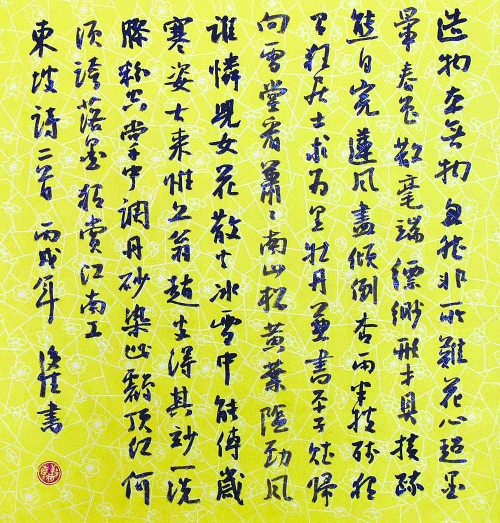 造物本無物忽然非所難花心超墨
暈春色散毫端縹緲形才具扶疏
態自完蓮風盡傾倒杏雨半披殘獨
有狂居士求為黑牡丹兼書平子賦歸
向雪堂看蕭〻南山松黃葉隕勁風
誰憐兒女花散火冰雪中能傳歲
寒姿古來惟丘翁趙叟得其妙一洗
膠粉空掌中調丹砂染此鶴頂紅何
須誇落墨獨賞江南工
東坡詩二首 丙戌年 書